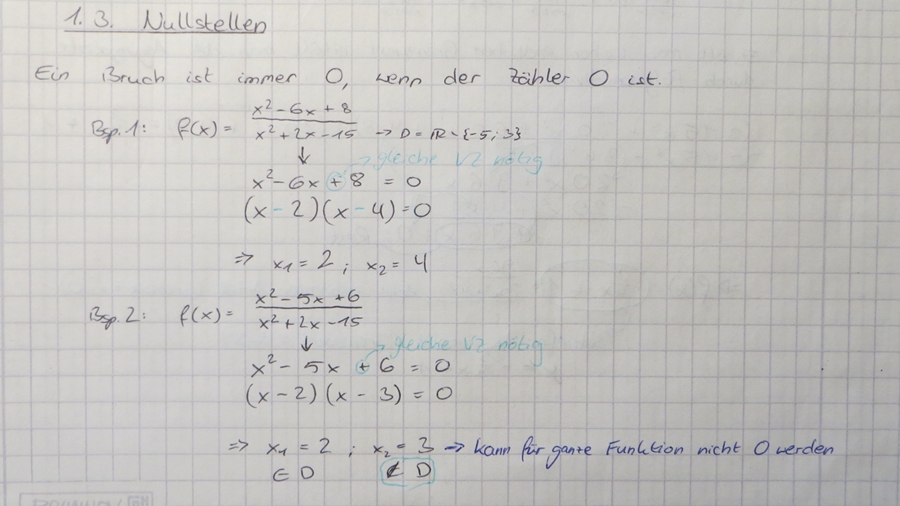 1.3. Nullstellen
Ein Bruch ist immer 0, wenn der Zähler 0 ist.
Bsp. 1: f(x) = (x² - 6x + 8) / (x² + 2x - 15) → D = ℝ \ {-5; 3}
↓ → gleiche VZ nötig
x² - 6x + 8 = 0
(x - 2)(x - 4) = 0
⇒ x₁ = 2 ; x₂ = 4
Bsp. 2: f(x) = (x² - 5x + 6) / (x² + 2x - 15)
↓ → gleiche VZ nötig
x² - 5x + 6 = 0
(x - 2)(x - 3) = 0
⇒ x₁ = 2 ; x₂ = 3 → kann für ganze Funktion nicht 0 werden
∈ D ∉ D